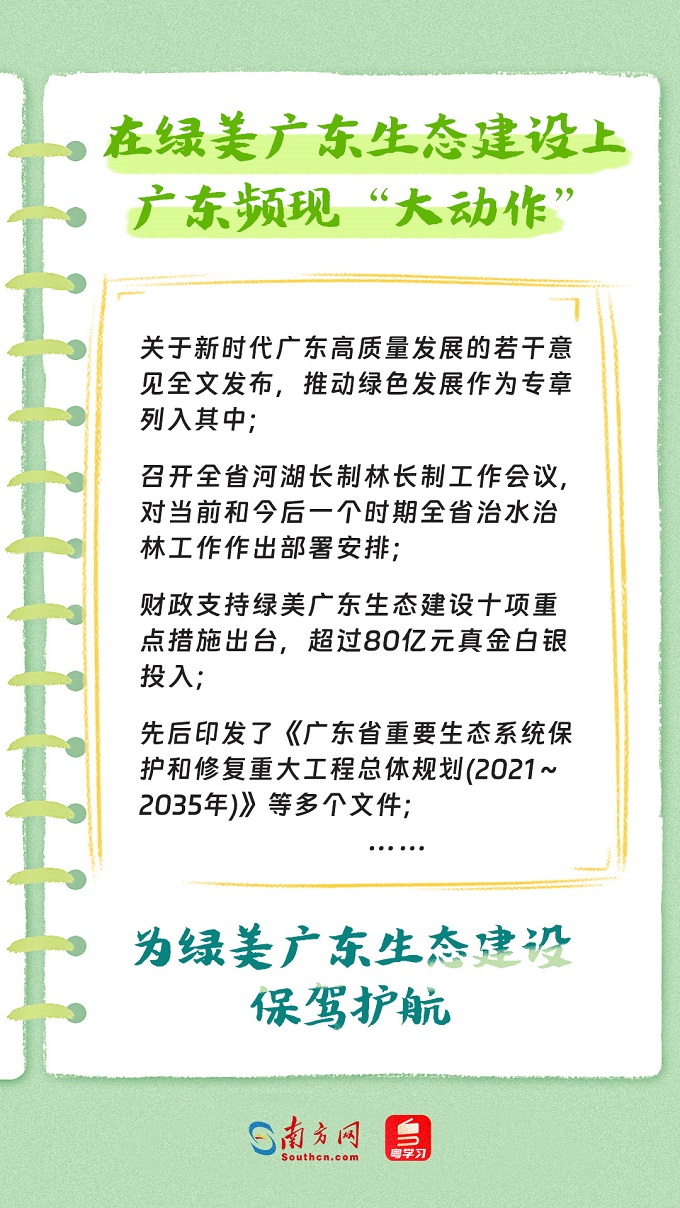 在绿美广东生态建设上
广东频现“大动作”
关于新时代广东高质量发展的若干意
见全文发布，推动绿色发展作为专章
列入其中；
召开全省河湖长制林长制工作会议，
对当前和今后一个时期全省治水治
林工作作出部署安排；
财政支持绿美广东生态建设十项重
点措施出台，超过80亿元真金白银
投入；
先后印发了《广东省重要生态系统保
护和修复重大工程总体规划(2021~
2035年)》等多个文件；
……
为绿美广东生态建设
保驾护航
南方网
Southcn.com
粤学习